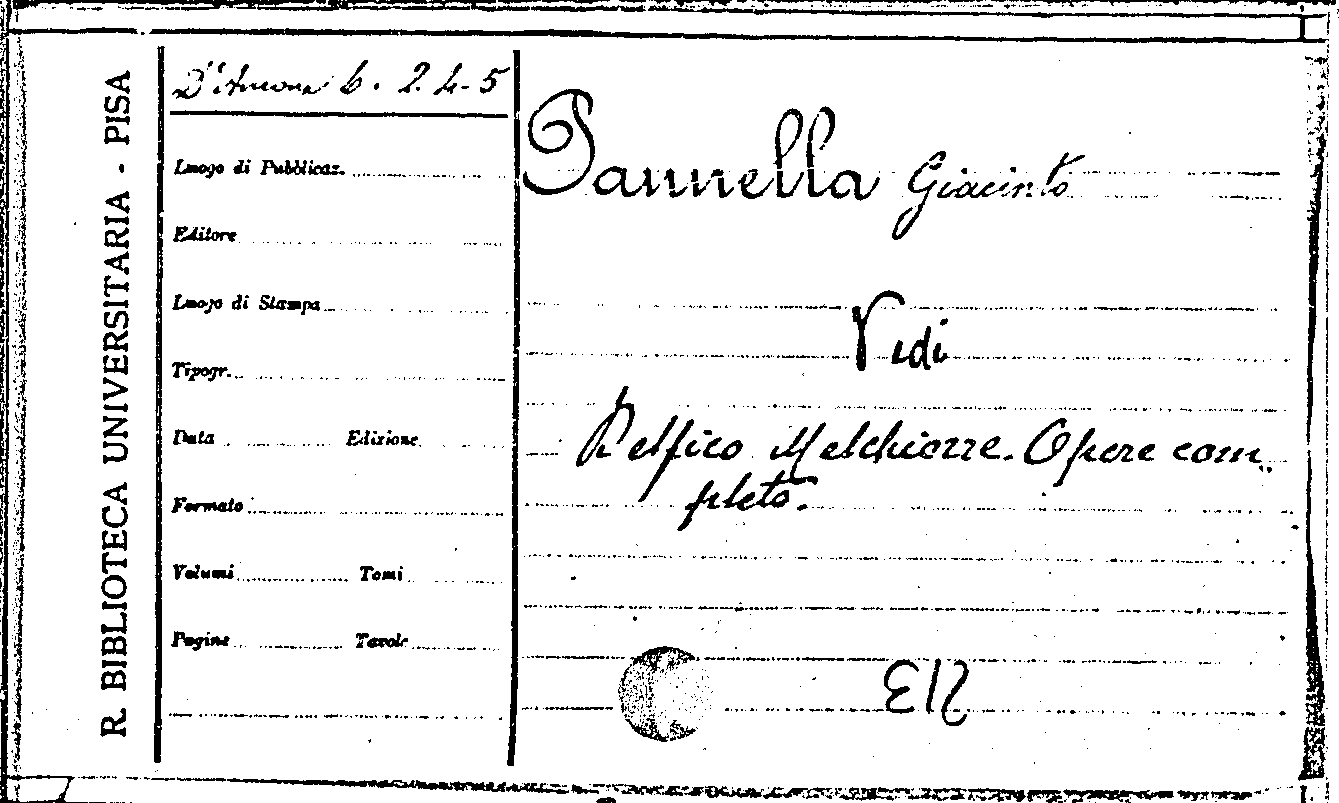 R. BIBLIOTECA UNIVERSITARIA - PISA
D'Ancona 6. 2. 4-5
Luogo di Pubblicaz.
Editore
Luogo di Stampa
Tipogr.
Data Edizione
Formato
Volumi Tomi
Pagine Tavole
Pannella Giacinto
Vedi
Delfico Melchiorre. Opere com
plete.